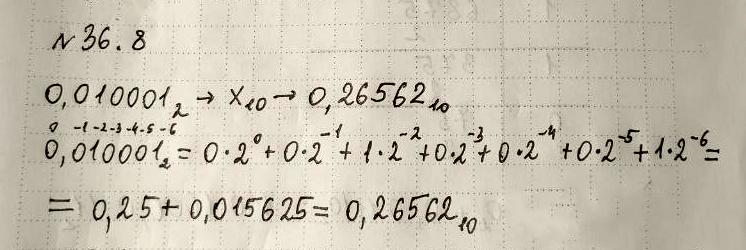 N 36.8
0,010001₂ → X₁₀ → 0,26562₁₀
0 -1 -2 -3 -4 -5 -6
0,010001₂ = 0·2⁰ + 0·2⁻¹ + 1·2⁻² + 0·2⁻³ + 0·2⁻⁴ + 0·2⁻⁵ + 1·2⁻⁶ =
= 0,25 + 0,015625 = 0,26562₁₀